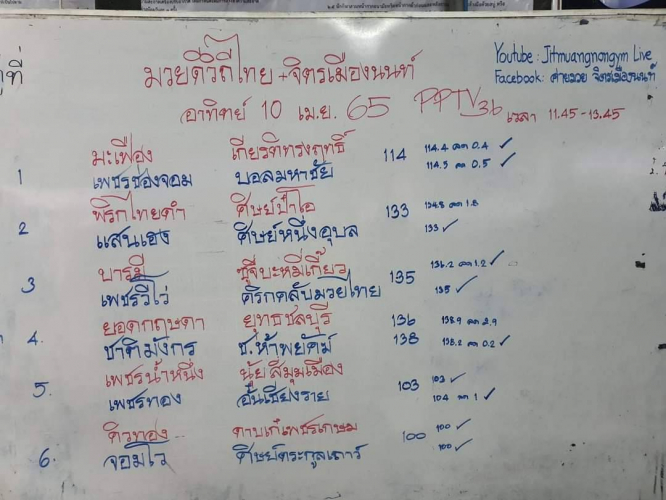 คู่ที่
มวยดีวิถีไทย + จิตรเมืองนนท์
Youtube : Jitmuangnongym Live
Facebook: ค่ายมวย จิตรเมืองนนท์
อาทิตย์ 10 เม.ย. 65 PPTV36 เวลา 11.45 - 13.45
มะเฟือง เกียรติทรงฤทธิ์ 114 114.4 ลด 0.4 ✓
1 เพชรช่องจอม บอลมหาชัย 114.5 ลด 0.5 ✓
พริกไทยดำ ศิษย์ป๋าโอ 133 134.8 ลด 1.8
2 แสนเฮง ศิษย์หนึ่งอุบล 133 ✓
บารมี ซุ้จีบะหมี่เกี๊ยว 135 136.2 ลด 1.2 ✓
3 เพชรวีไว่ ศิรกคลับมวยไทย 135 ✓
ยอดกฤษดา ยุทธชลบุรี 136 138.9 ลด 2.9
4. ชาติมังกร ช.ห้าพยัคฆ์ 138 138.2 ลด 0.2 ✓
เพชรน้ำหนึ่ง นุ้ยสี่มุมเมือง 103 103 ✓
5. เพชรทอง อั๋นเชียงราย 104 ลด 1 ✓
คิวทอง ดาบเก๋เพชรเกษม 100 100 ✓
6. จอมโว ศิษย์ตระกูลเถาว์ 100 ✓